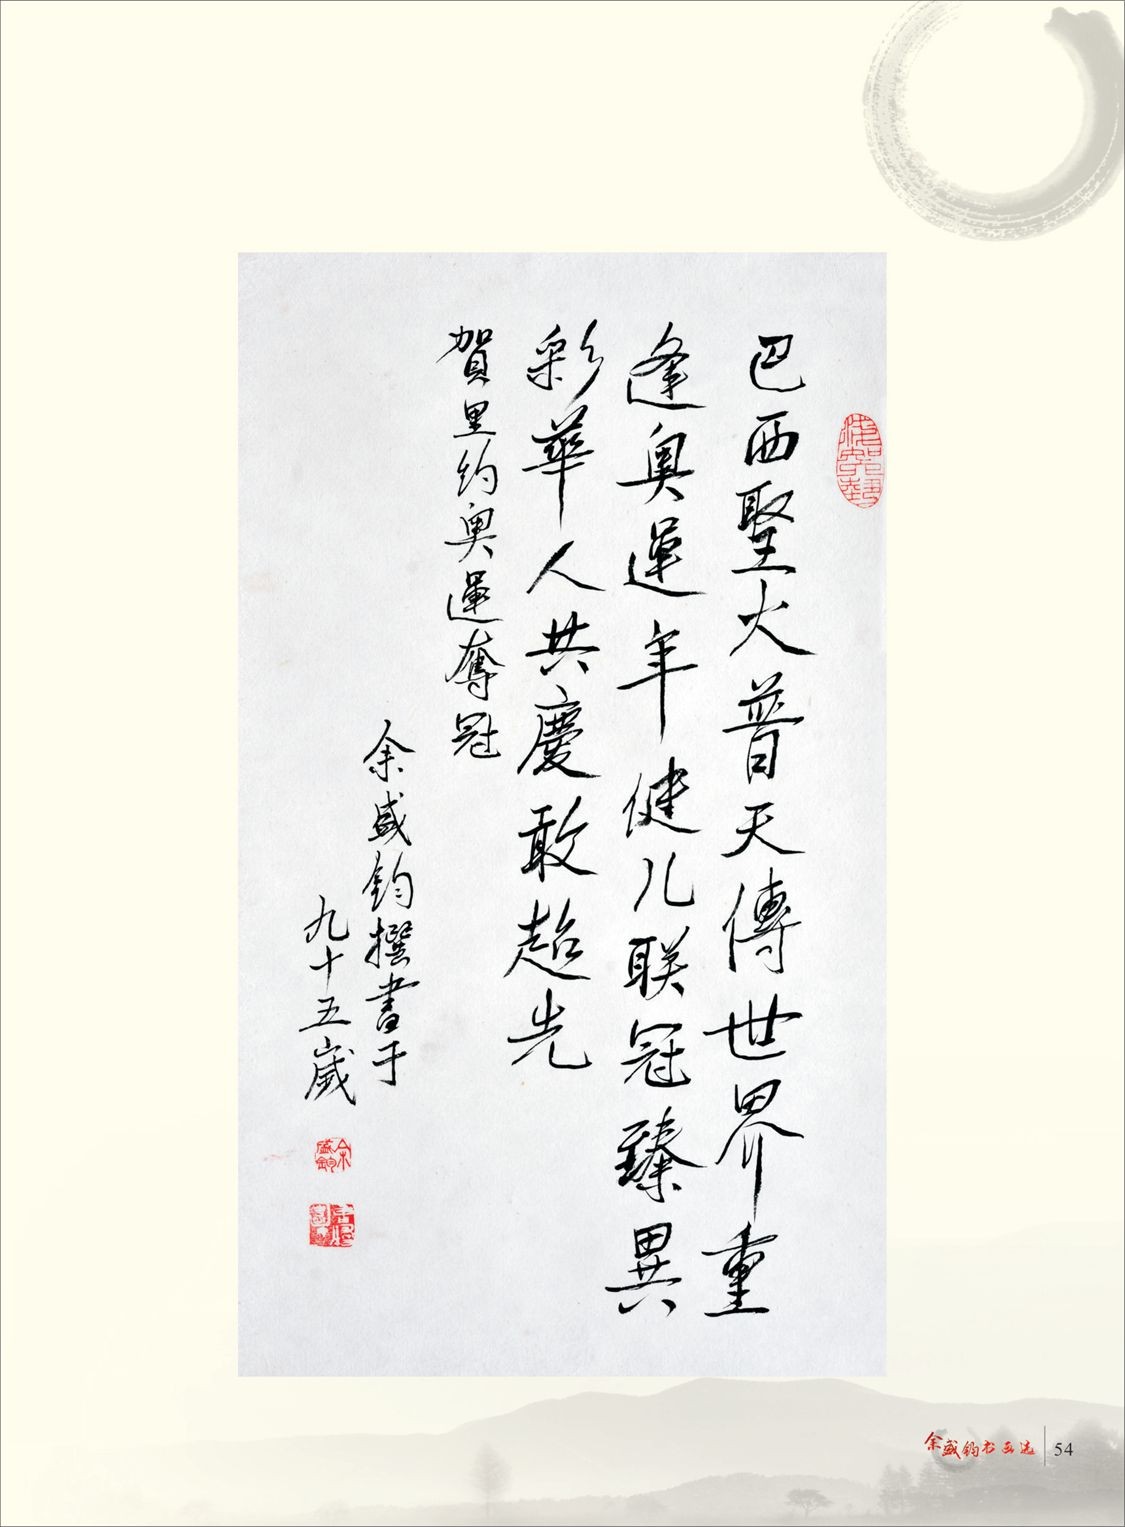 巴西聖火普天傳世界重
逢奧運年健儿联冠臻異
彩華人共慶敢超先
賀里约奧運奪冠
余盛鈞撰書于
九十五歲
余盛鈞
余盛钧书画选
54